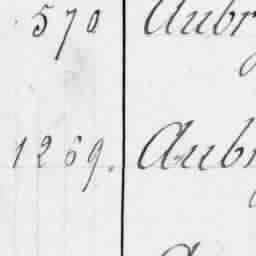 570 Aubr
1269. Aub